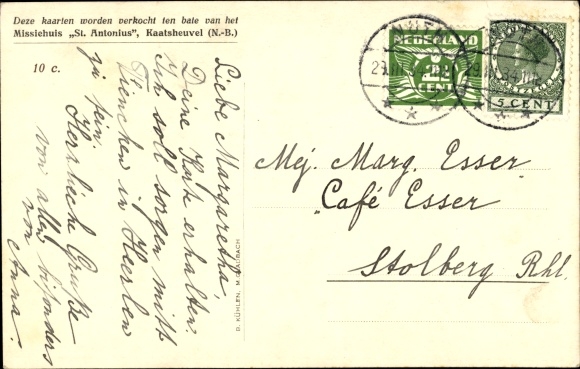 Deze kaarten worden verkocht ten bate van het
Missiehuis „St. Antonius", Kaatsheuvel (N.-B.)
10 c.
Liebe Margaretha,
Deine Karte erhalten.
Ich soll sorgen mitt
in Heerlen
zu sein.
Herzliche Grüße
von allen besonders
von
Anna.
B. KÜHLEN, M.GLADBACH
NEDERLAND
CENT
5 CENT
Mej. Marg. Esser
Café Esser
Stolberg Rhl.